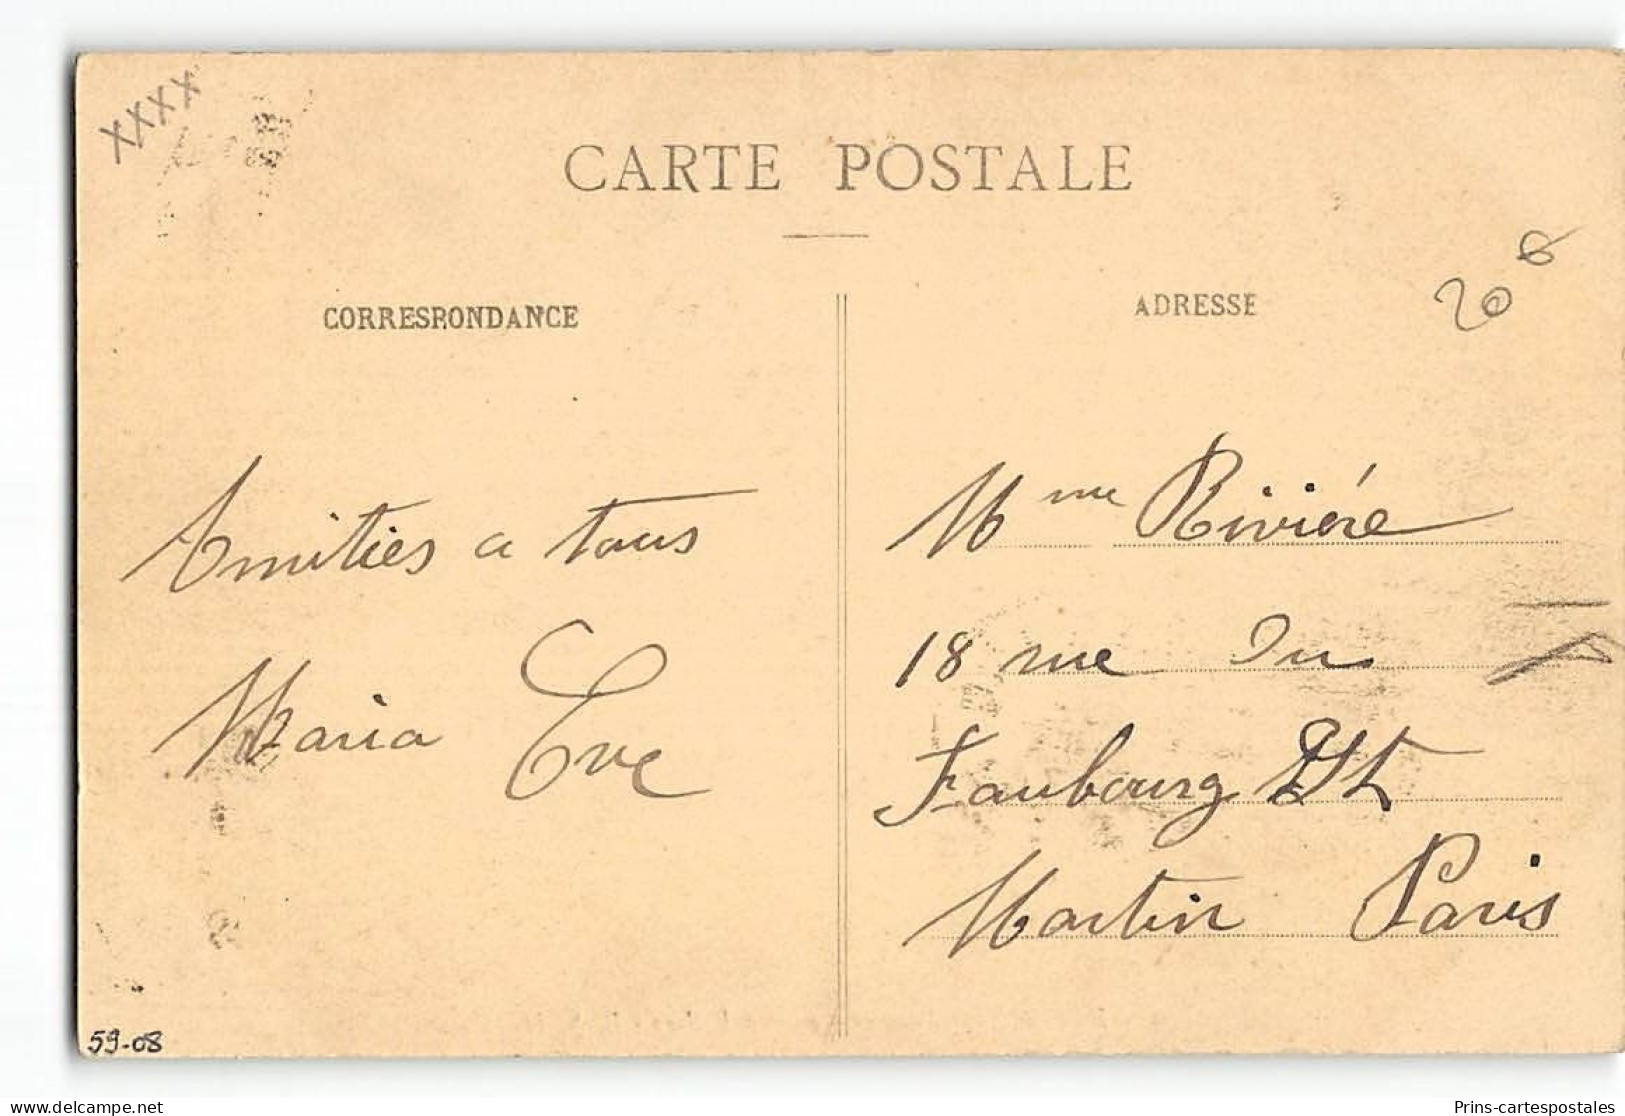 XXXX
CARTE POSTALE
CORRESPONDANCE
ADRESSE
20
Amitiés a tous
Maria Eve
Mme Riviére
18 rue Du
Faubourg St
Martin Paris
59-08
delcampe.net
Prins-cartespostales